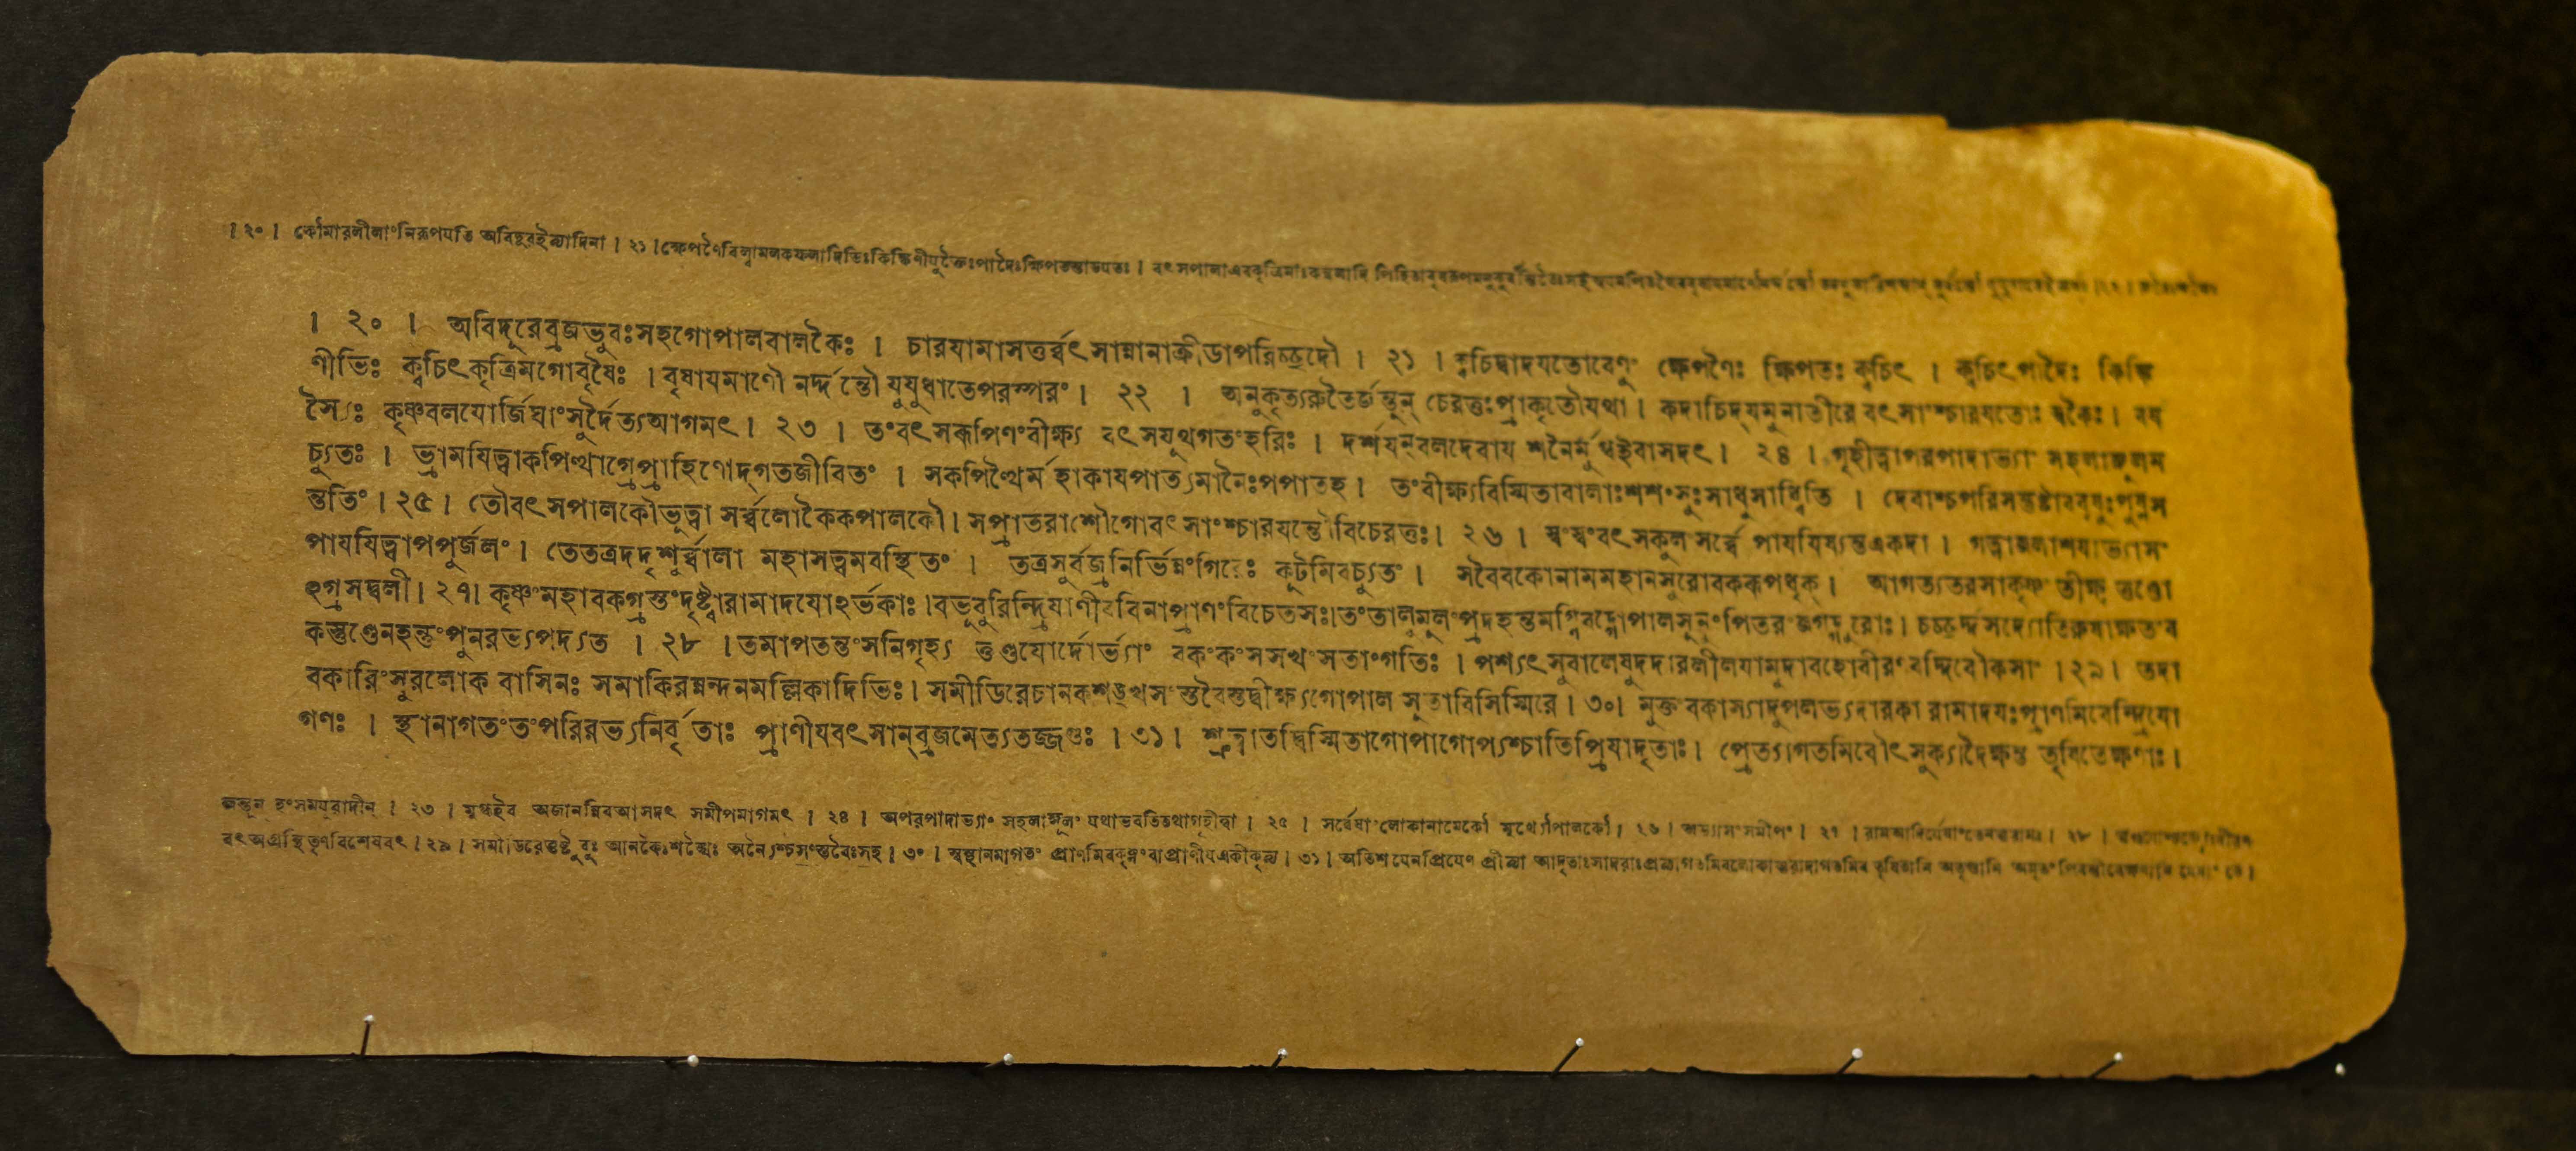 । ২০ । কৌমারলীলাংনিরূপযতি অবিদূরইত্যাদিনা । ২১ । ক্ষেপণৈবিল্বামলকফলাদিভিঃকিঙ্কিণীযুক্তৈঃপাদৈঃক্ষিপতস্তাডযতঃ ।
। ২০ । অবিদূরেব্রজভুবঃসহগোপালবালকৈঃ । চারযামাসতুর্ব্বৎসান্নানাক্রীডাপরিচ্ছদৌ । ২১ । ক্বচিদ্বাদযতোবেণুং ক্ষেপণৈঃ ক্ষিপতঃ ক্বচিৎ । ক্বচিৎপাদৈঃ কিঙ্কি
ণীভিঃ ক্বচিৎকৃত্রিমগোবৃষৈঃ । বৃষাযমাণৌ নর্দ্দন্তৌ যুযুধাতেপরস্পরং । ২২ । অনুকৃত্যরুতৈর্জন্তূন্ চেরতুঃপ্রাকৃতৌযথা । কদাচিদ্যমুনাতীরে বৎসাংশ্চারযতোঃ স্বকৈঃ । বয
স্যৈঃ কৃষ্ণবলযোর্জিঘাংসুর্দৈত্যআগমৎ । ২৩ । তংবৎসরূপিণংবীক্ষ্য বৎসযূথগতংহরিঃ । দর্শযন্বলদেবায শনৈর্মুগ্ধইবাসদৎ । ২৪ । গৃহীত্বাপরপাদাভ্যাং সহলাঙ্গূলম
চ্যুতঃ । ভ্রামযিত্বাকপিত্থাগ্রেপ্রাহিণোদ্গতজীবিতং । সকপিত্থৈর্মহাকাযপাত্যমানৈঃপপাতহ । তংবীক্ষ্যবিস্মিতাবালাঃশশংসুঃসাধুসাধ্বিতি । দেবাশ্চপরিসন্তুষ্টাববৃষুঃপুষ্পস
ন্ততিং । ২৫ । তৌবৎসপালকৌভূত্বা সর্ব্বলোকৈকপালকৌ । সপ্রাতরাশৌগোবৎসাংশ্চারযন্তৌবিচেরতুঃ । ২৬ । স্বংস্বংবৎসকুলং সর্ব্বে পাযযিষ্যন্তএকদা । গত্বাজলাশযাভ্যাসং
পাযযিত্বাপপুর্জলং । তেতত্রদদৃশুর্ব্বালা মহাসত্ত্বমবস্থিতং । তত্রসুর্বজ্রনির্ভিন্নংগিরেঃ কূটমিবচ্যুতং । সবৈবকোনামমহানসুরোবকরূপধৃক্ । আগত্যতরসাকৃষ্ণং তীক্ষ্ণতুণ্ডো
ঽগ্রসদ্বলী । ২৭ । কৃষ্ণংমহাবকগ্রস্তংদৃষ্ট্বারামাদযোঽর্ভকাঃ । বভূবুরিন্দ্রিযাণীববিনাপ্রাণংবিচেতসঃ । তংতালুমূলংপ্রদহন্তমগ্নিবদ্গোপালসূনুংপিতরংজগদ্গুরোঃ । চচ্ছর্দ্দসদ্যোতিরুষাক্ষতংব
কস্তুণ্ডেনহন্তুংপুনরভ্যপদ্যত । ২৮ । তমাপতন্তংসনিগৃহ্য তুণ্ডযোর্দোর্ভ্যাং বকংকংসসখংসতাংগতিঃ । পশ্যৎসুবালেষুদদারলীলযামুদাবহোবীরণবদ্দিবৌকসাং । ২৯ । তদা
বকারিংসুরলোক বাসিনঃ সমাকিরন্নন্দনমল্লিকাদিভিঃ । সমীডিরেচানকশঙ্খসংস্তবৈস্তদ্বীক্ষ্যগোপাল সুতাবিসিস্মিরে । ৩০ । মুক্তংবকাস্যাদুপলভ্যদারকা রামাদযঃপ্রাণমিবেন্দ্রিযো
গণঃ । স্থানাগতংতংপরিরভ্যনির্বৃতাঃ প্রাণীযবৎসান্ব্রজমেত্যতজ্জগুঃ । ৩১ । শ্রুত্বাতদ্বিস্মিতাগোপাগোপ্যশ্চাতিপ্রিযাদৃতাঃ । প্রেত্যাগতমিবৌৎসুক্যাদৈক্ষন্ত তৃষিতেক্ষণাঃ ।
জন্তূন্ হংসমযূরাদীন্ । ২৩ । মুগ্ধইব অজানন্নিবআসদৎ সমীপমাগমৎ । ২৪ । অপরপাদাভ্যাং সহলাঙ্গূলং যথাভবতিতথাগৃহীত্বা । ২৫ । সর্ব্বেষাংলোকানামেকৌ মুখ্যৌপালকৌ । ২৬ । অভ্যাসংসমীপং । ২৭ ।
বৎঅগ্রন্থিতৃণবিশেষবৎ । ২৯ । সমীডিরেতুষ্টুবুঃ আনকৈঃশঙ্খৈঃ অন্যৈশ্চসংস্তবৈঃসহ । ৩০ । স্বস্থানমাগতং । ৩১ । অতিশযেনপ্রিযেণ প্রীত্যা আদৃতাঃসাদরাঃ